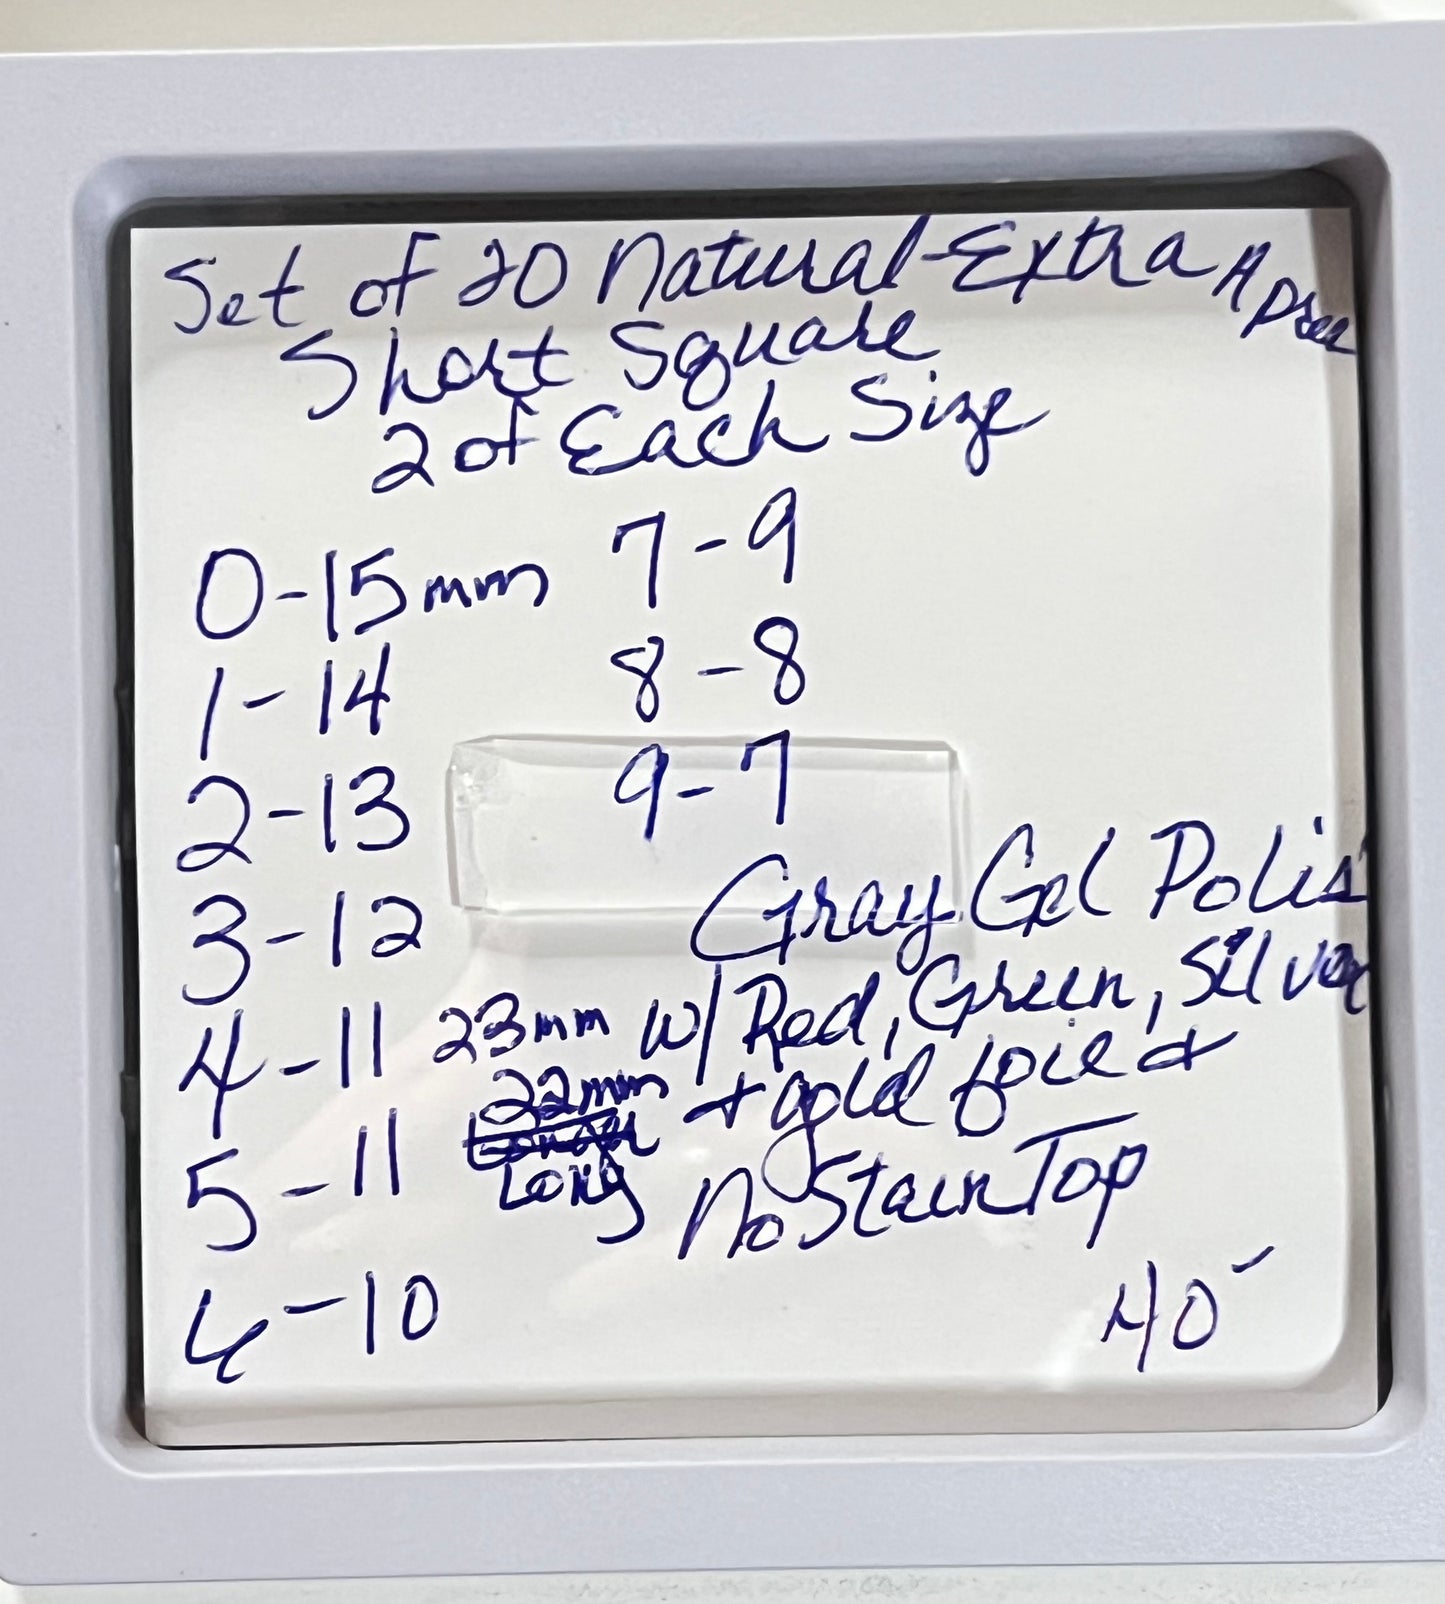 Set of 20 Natural-Extra
Short Square
2 of Each Size
0-15mm
1-14
2-13
3-12
4-11
5-11
6-10
7-9
8-8
9-7
23mm
22mm
Long
Gray Gel Polis
w/ Red, Green, Silver
+ gold foil +
No Stain Top
40-